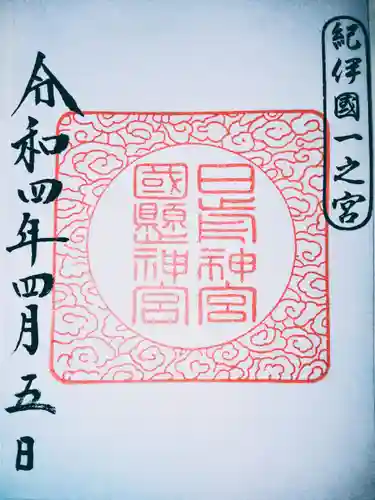 紀伊國一之宮
日前神宮
國懸神宮
令和四年四月五日